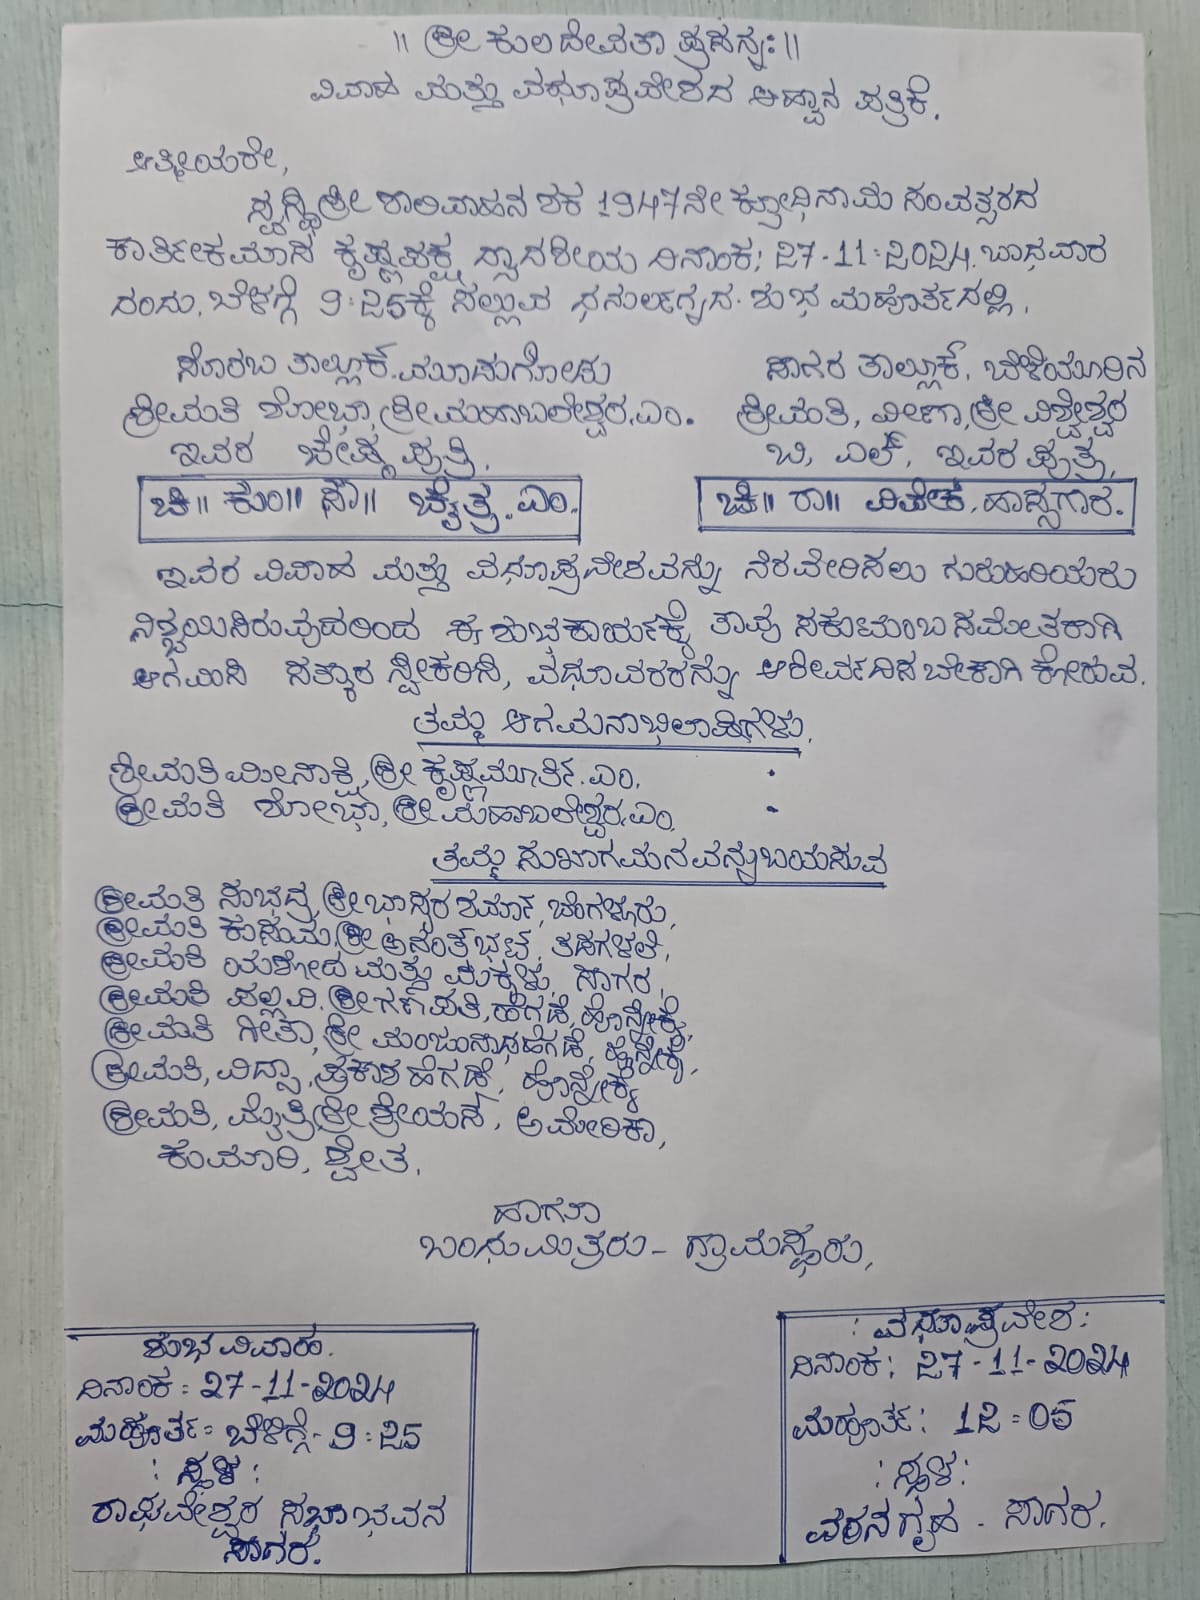 ॥ ಶ್ರೀ ಕುಲದೇವತಾ ಪ್ರಸನ್ನಃ ॥
ವಿವಾಹ ಮತ್ತು ವಧೂಪ್ರವೇಶದ ಆಹ್ವಾನ ಪತ್ರಿಕೆ.
ಆತ್ಮೀಯರೇ,
ಸ್ವಸ್ಥಿಶ್ರೀ ಶಾಲಿವಾಹನ ಶಕ 1947ನೇ ಕ್ರೋಧಿನಾಮ ಸಂವತ್ಸರದ
ಕಾರ್ತೀಕಮಾಸ ಕೃಷ್ಣಪಕ್ಷ ದ್ವಾದಶೀಯ ದಿನಾಂಕ: 27-11-2024. ಬುಧವಾರ
ದಂದು, ಬೆಳಗ್ಗೆ 9:25ಕ್ಕೆ ಸಲ್ಲುವ ಧನುರ್ಲಗ್ನದ. ಶುಭ ಮಹೂರ್ತದಲ್ಲಿ,
ಸೊರಬ ತಾಲ್ಲೂಕ್. ಮೂಡುಗೋಡು
ಶ್ರೀಮತಿ ಶೋಭಾ, ಶ್ರೀ ಮಹಾಬಲೇಶ್ವರ.ಎಂ.
ಇವರ ಜೇಷ್ಠ ಪುತ್ರಿ,
ಚಿ॥ ಕುಂ॥ ಸೌ॥ ಚೈತ್ರ. ಎಂ.
ಸಾಗರ ತಾಲ್ಲೂಕ್, ಬೆಳೆಯೂರಿನ
ಶ್ರೀಮತಿ, ವೀಣಾ, ಶ್ರೀ ವಿಶ್ವೇಶ್ವರ
ಬಿ, ಎಲ್, ಇವರ ಪುತ್ರ,
ಚಿ॥ ರಾ॥ ವಿವೇಕ, ಹಾಸ್ಸಗಾರ.
ಇವರ ವಿವಾಹ ಮತ್ತು ವಧೂಪ್ರವೇಶವನ್ನು ನೆರವೇರಿಸಲು ಗುರುಹಿರಿಯರು
ನಿಶ್ಚಯಿಸಿರುವುದರಿಂದ ಈ ಶುಭಕಾರ್ಯಕ್ಕೆ ತಾವು ಸಕುಟುಂಬ ಸಮೇತರಾಗಿ
ಆಗಮಿಸಿ ಸತ್ಕಾರ ಸ್ವೀಕರಿಸಿ, ವಧೂವರರನ್ನು ಆಶೀರ್ವದಿಸ ಬೇಕಾಗಿ ಕೋರುವ.
ತಮ್ಮ ಆಗಮನಾಭಿಲಾಷಿಗಳು,
ಶ್ರೀಮತಿ ಮೀನಾಕ್ಷಿ, ಶ್ರೀ ಕೃಷ್ಣಮೂರ್ತಿ. ಎಂ.
ಶ್ರೀಮತಿ ಶೋಭಾ, ಶ್ರೀ ಮಹಾಬಲೇಶ್ವರ.ಎಂ.
ತಮ್ಮ ಸುಖಾಗಮನವನ್ನು ಬಯಸುವ
ಶ್ರೀಮತಿ ಸುಭದ್ರ, ಶ್ರೀ ಭಾಸ್ಕರ ಶರ್ಮಾ, ಬೆಂಗಳೂರು,
ಶ್ರೀಮತಿ ಕುಸುಮ, ಶ್ರೀ ಅನಂತ ಭಟ್, ತಡಗಳಲೆ,
ಶ್ರೀಮತಿ ಯಶೋದ ಮತ್ತು ಮಕ್ಕಳು, ಸಾಗರ,
ಶ್ರೀಮತಿ ಪಲ್ಲವಿ. ಶ್ರೀ ಗಣಪತಿ, ಹೆಗಡೆ, ಹೊನ್ನೇಕೈ,
ಶ್ರೀಮತಿ ಗೀತಾ, ಶ್ರೀ ಮಂಜುನಾಥ ಹೆಗಡೆ, ಹೊನ್ನೇಕೈ,
ಶ್ರೀಮತಿ, ವಿದ್ಯಾ, ಪ್ರಕಾಶ ಹೆಗಡೆ, ಹೊನ್ನೇಕೈ
ಶ್ರೀಮತಿ, ಮೈತ್ರಿ, ಶ್ರೀ ಶ್ರೇಯಸ್, ಅಮೇರಿಕಾ,
ಕುಮಾರಿ, ಶ್ವೇತ,
ಹಾಗೂ
ಬಂಧುಮಿತ್ರರು - ಗ್ರಾಮಸ್ಥರು,
ಶುಭವಿವಾಹ.
ದಿನಾಂಕ: 27-11-2024
ಮಹೂರ್ತ: ಬೆಳಿಗ್ಗೆ - 9:25
: ಸ್ಥಳ :
ರಾಘವೇಶ್ವರ ಸಭಾಭವನ
ಸಾಗರ.
: ವಧೂಪ್ರವೇಶ :
ದಿನಾಂಕ: 27-11-2024
ಮಹೂರ್ತ: 12=05
: ಸ್ಥಳ :
ವರನಗೃಹ - ಸಾಗರ.